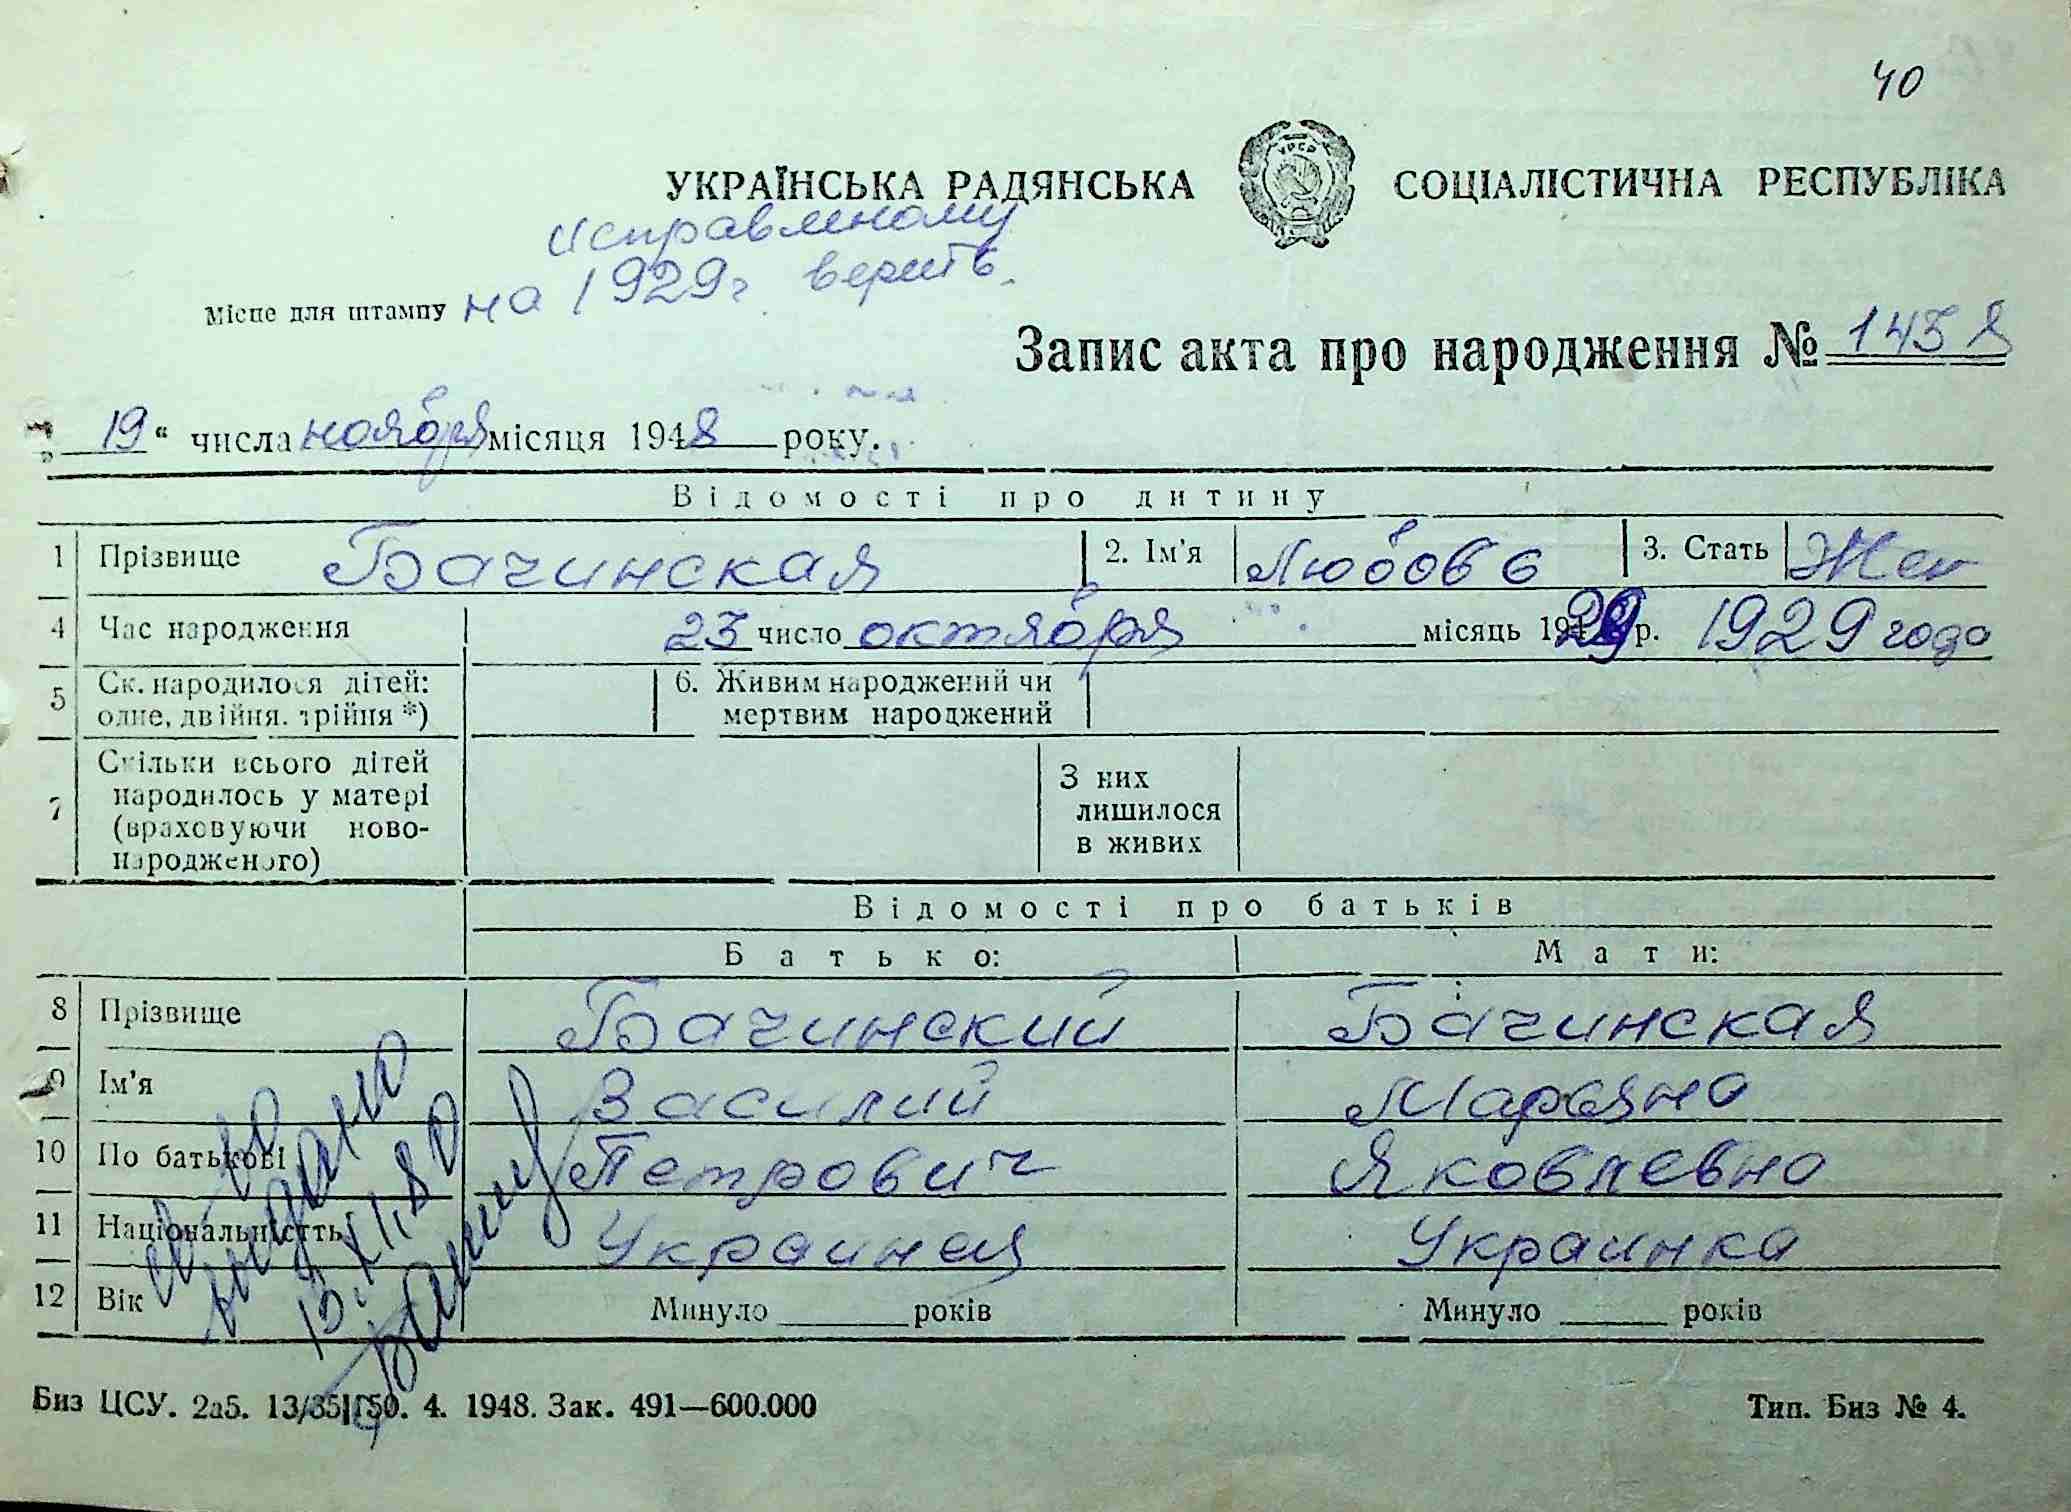 40
УКРАЇНСЬКА РАДЯНСЬКА УРСР СОЦІАЛІСТИЧНА РЕСПУБЛІКА
Исправленому
на 1929 г верить.
Місце для штампу
Запис акта про народження № 1458
„19“ числа ноября місяця 1948 року.
Відомості про дитину
1 Прізвище Бачинская 2. Ім'я Любовь 3. Стать Жен
4 Час народження 23 число октября місяць 1929 р. 1929 года
5 Ск. народилося дітей: одне, двійня, трійня *) 6. Живим народжений чи мертвим народжений
7 Скільки всього дітей народилось у матері (враховуючи ново-народженого) З них лишилося в живих
Відомості про батьків
Батько: Мати:
8 Прізвище Бачинский Бачинская
9 Ім'я Василий Марьяна
10 По батькові Петрович Яковлевна
11 Національністть Украинец Украинка
12 Вік Минуло ____ років Минуло ____ років
св-во
выдано
13.XII.80
Биз ЦСУ. 2а5. 13/35 150. 4. 1948. Зак. 491—600.000 Тип. Биз № 4.